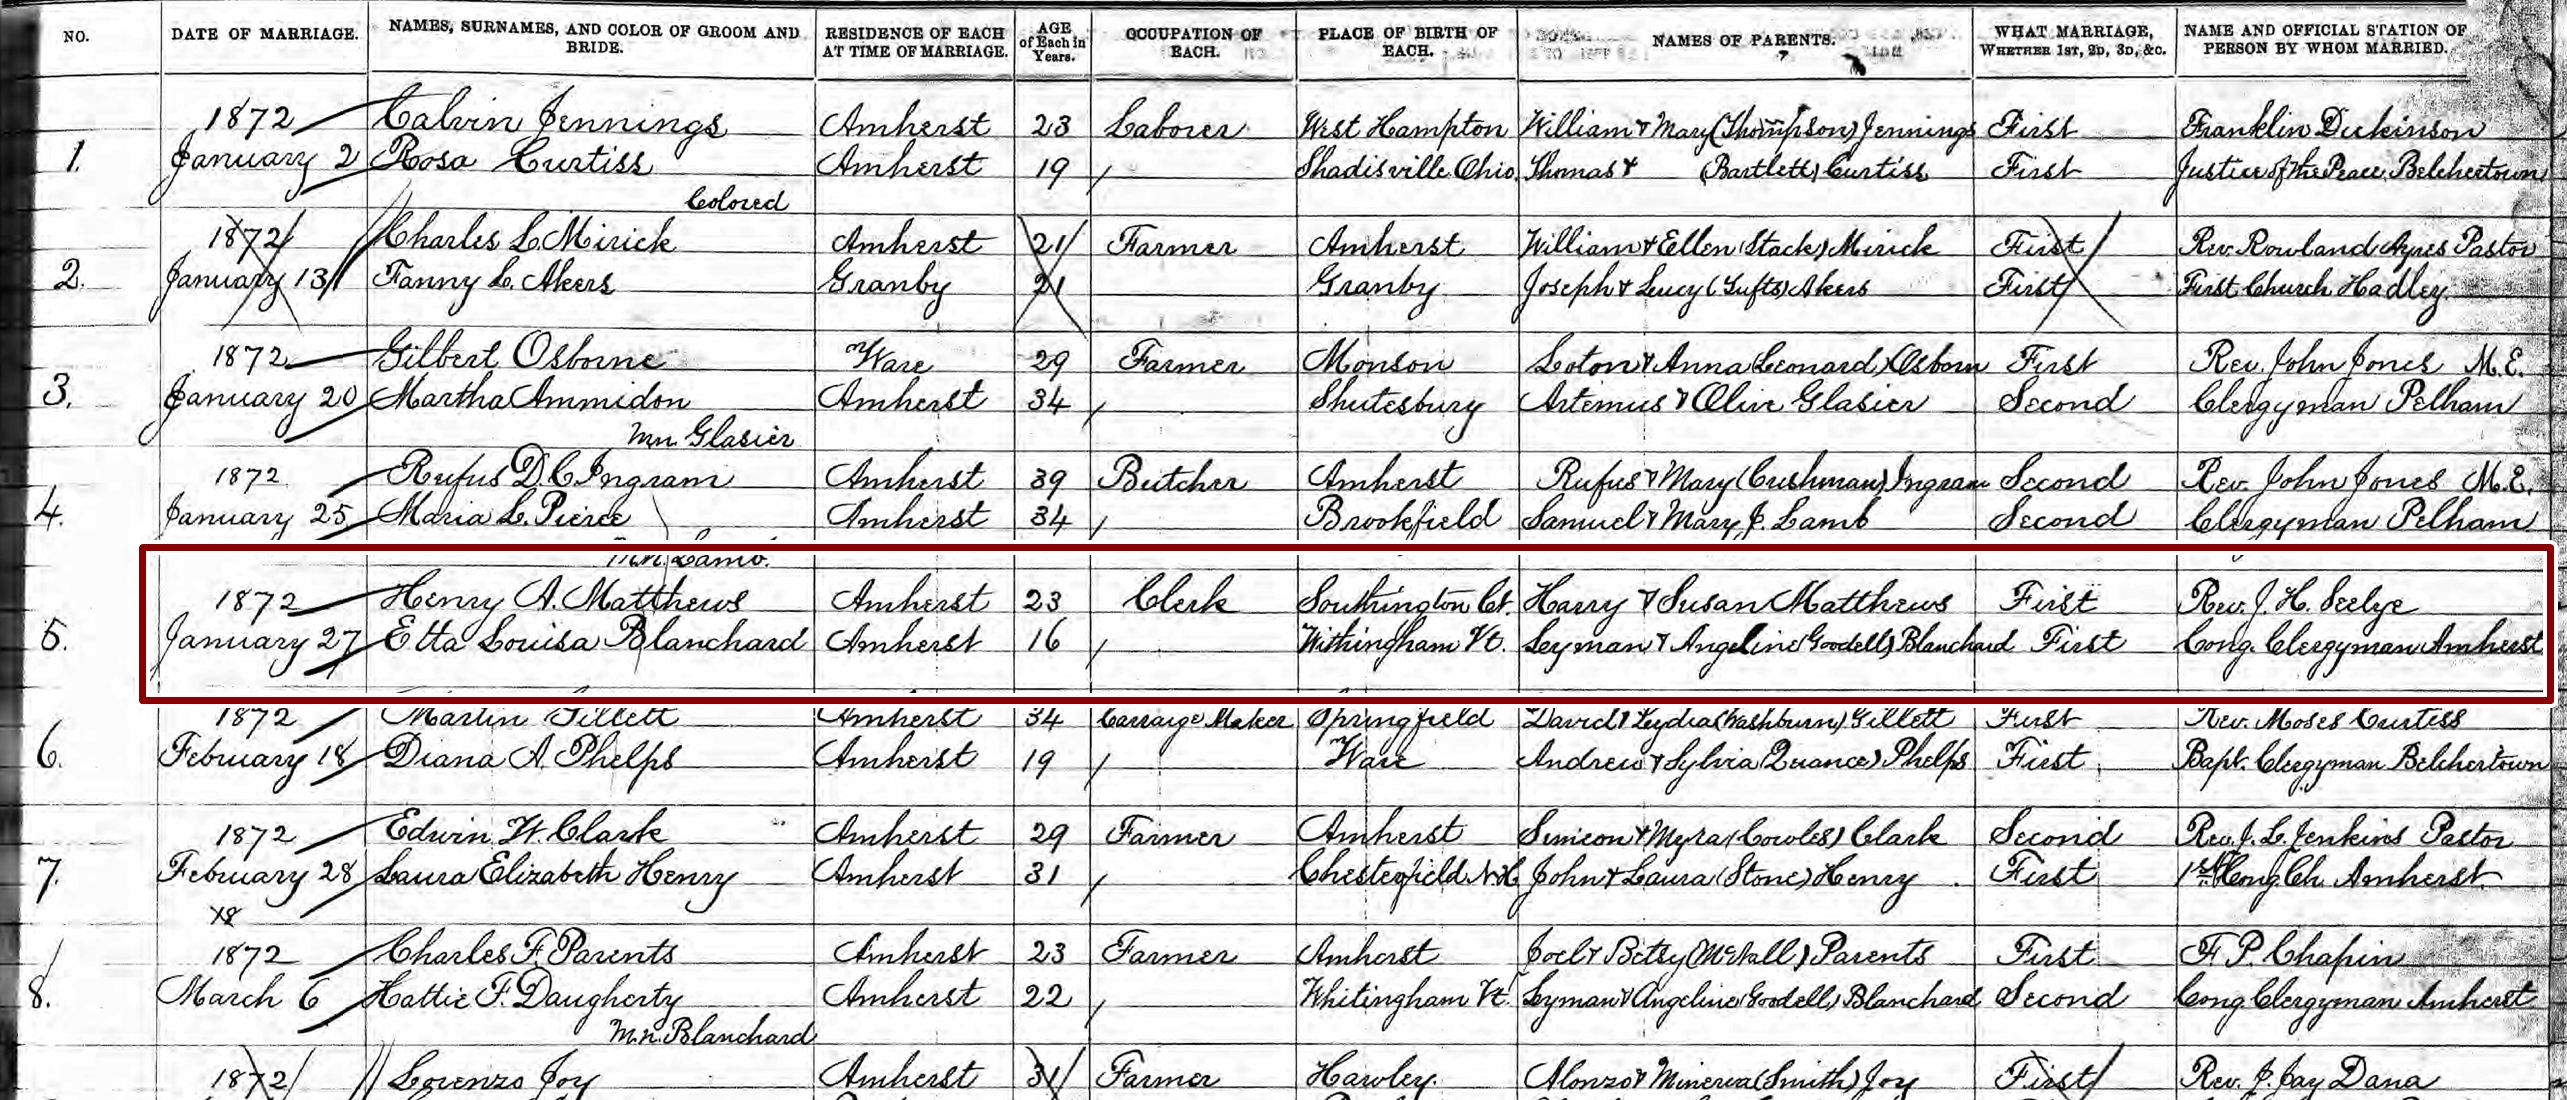 NO. DATE OF MARRIAGE. NAMES, SURNAMES, AND COLOR OF GROOM AND BRIDE. RESIDENCE OF EACH AT TIME OF MARRIAGE. AGE of Each in Years. OCCUPATION OF EACH. PLACE OF BIRTH OF EACH. NAMES OF PARENTS. WHAT MARRIAGE, WHETHER 1ST, 2D, 3D, &C. NAME AND OFFICIAL STATION OF PERSON BY WHOM MARRIED.
1872 Calvin Jennings Amherst 23 Laborer West Hampton William & Mary (Thompson) Jennings First Franklin Dickinson
1. January 2 Rosa Curtiss Amherst 19 Shadisville Ohio. Thomas & (Bartlett) Curtiss First Justice of the Peace Belchertown
Colored
1872 Charles L. Mirick Amherst 21 Farmer Amherst William & Ellen (Stack) Mirick First Rev. Rowland Ayres Pastor
2. January 13 Fanny L. Akers Granby 21 Granby Joseph & Lucy (Tufts) Akers First First Church Hadley
1872 Gilbert Osborne Ware 29 Farmer Monson Loton & Anna (Leonard) Osborn First Rev. John Jones M.E.
3. January 20 Martha Ammidon Amherst 34 Shutesbury Artemus & Olive Glasier Second Clergyman Pelham
Mn. Glasier
1872 Rufus D. C. Ingram Amherst 39 Butcher Amherst Rufus & Mary (Cushman) Ingram Second Rev. John Jones M.E.
4. January 25 Maria L. Pierce Amherst 34 Brookfield Samuel & Mary J. Lamb Second Clergyman Pelham
M.n. Lamb.
1872 Henry A. Matthews Amherst 23 Clerk Southington Ct. Harry & Susan Matthews First Rev. J. H. Seelye
5. January 27 Etta Louisa Blanchard Amherst 16 Withingham Vt. Leyman & Angeline (Goodell) Blanchard First Cong. Clergyman Amherst
1872 Martin Gillett Amherst 34 Carraige Maker Springfield David & Lydia (Washburn) Gillett First Rev. Moses Curtiss
6. February 18 Diana A. Phelps Amherst 19 Ware Andrew & Sylvia (Quance) Phelps First Bapt. Clergyman Belchertown
1872 Edwin W. Clark Amherst 29 Farmer Amherst Simeon & Myra (Cowles) Clark Second Rev. J. L. Jenkins Pastor
7. February 28 Laura Elizabeth Henry Amherst 31 Chesterfield N.H. John & Laura (Stone) Henry First 1st Cong. Ch. Amherst
1872 Charles F. Parents Amherst 23 Farmer Amherst Joel & Betsy (McFall) Parents First F. P. Chapin
8. March 6 Hattie F. Daugherty Amherst 22 Whitingham Vt. Lyman & Angeline (Goodell) Blanchard Second Cong. Clergyman Amherst
M.n. Blanchard
1872 Lorenzo Joy Amherst 31 Farmer Hawley. Alonzo & Minerva (Smith) Joy First Rev. J. Jay Dana